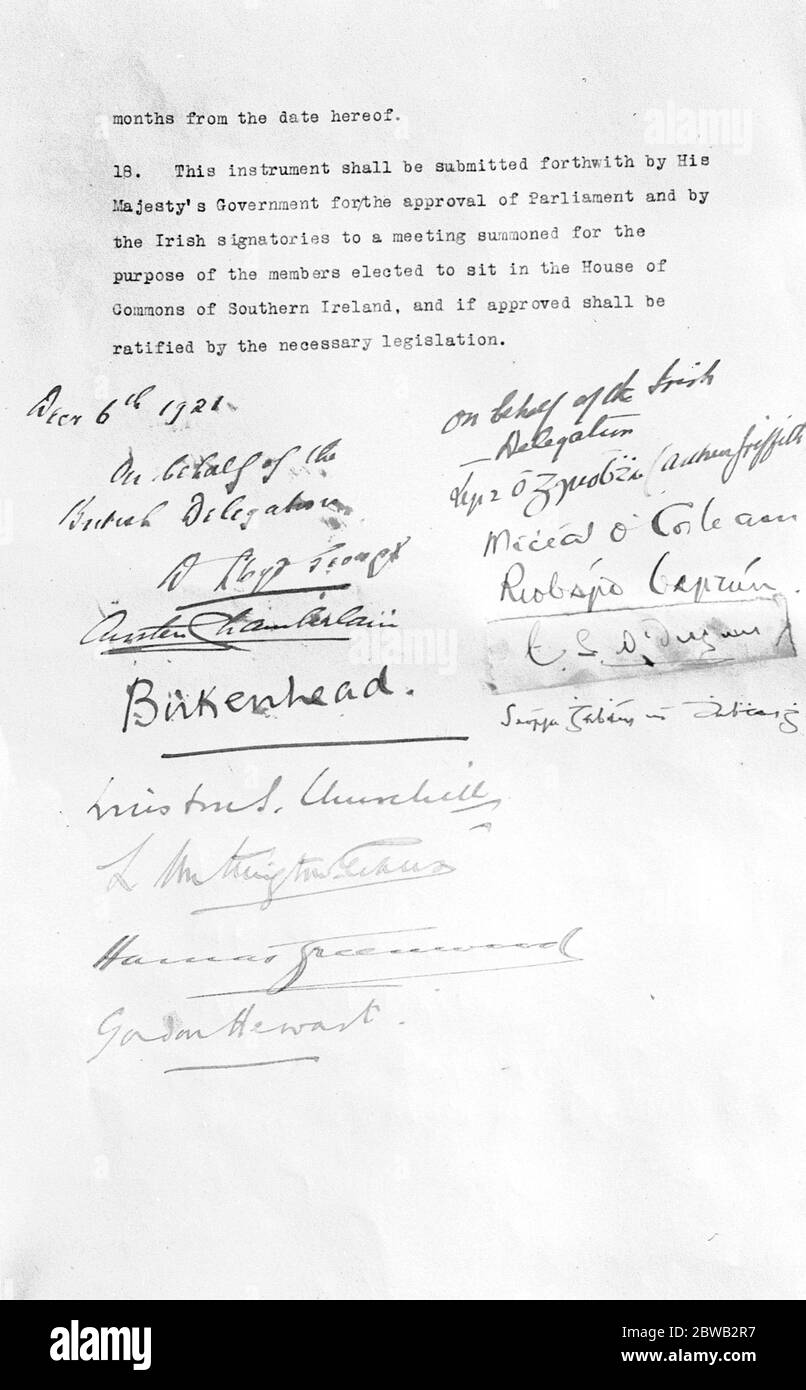 months from the date hereof.
18. This instrument shall be submitted forthwith by His
Majesty's Government for/the approval of Parliament and by
the Irish signatories to a meeting summoned for the
purpose of the members elected to sit in the House of
Commons of Southern Ireland, and if approved shall be
ratified by the necessary legislation.
Decr 6th 1921
On behalf of the
British Delegation
D Lloyd George
Austen Chamberlain
Birkenhead.
Winston S. Churchill
L Worthington Evans
Hamar Greenwood
Gordon Hewart.
On behalf of the Irish
Delegation
(Arthur Griffith
Mícéál Ó Coileáin
Riobárd Bartún.
E. S. Ó Dugain
alamy
alamy
alamy
Image ID: 2BWB2R7
www.alamy.com